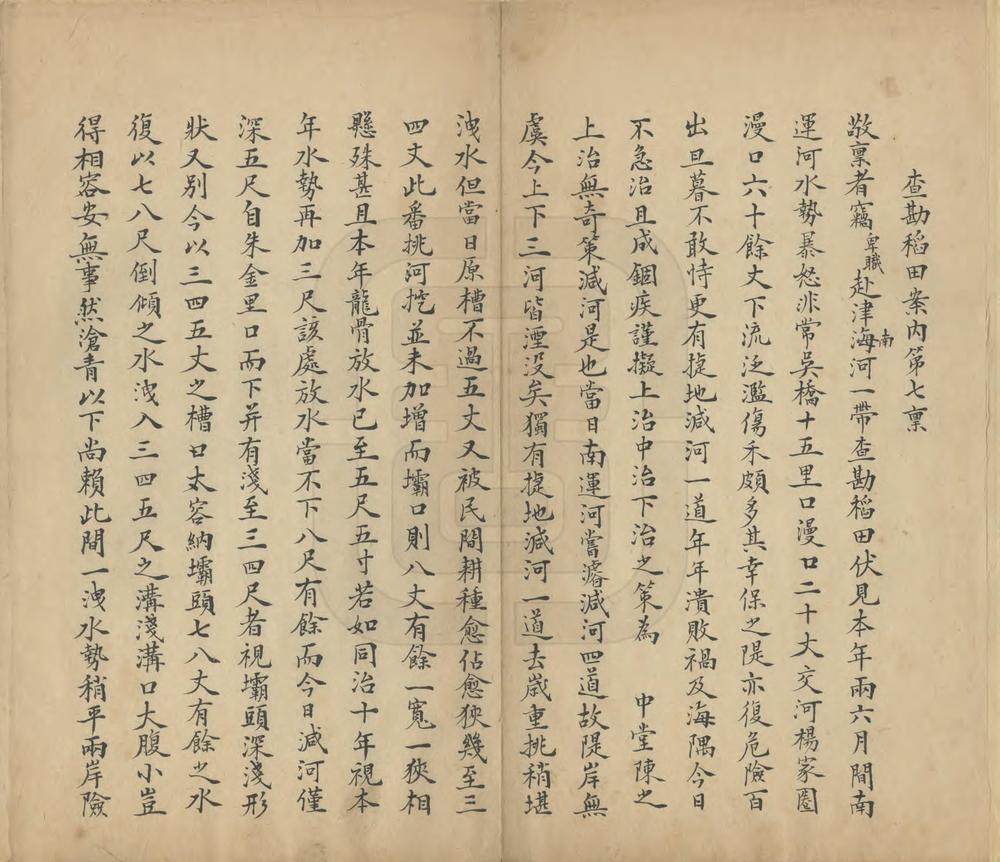 查勘稻田案內第七稟
敬稟者竊卑職赴津海南河一帶查勘稻田伏見本年兩六月間南
運河水勢暴怒非常吳橋十五里口漫口二十丈交河楊家圈
漫口六十餘丈下流泛濫傷禾頗多其幸保之隄亦復危險百
出旦暮不敢恃更有捷地減河一道年年潰敗禍及海隅今日
不急治且成錮疾謹擬上治中治下治之策為 中堂陳之
上治無奇策減河是也當日南運河嘗濬減河四道故隄岸無
虞今上下三河皆湮沒矣獨有捷地減河一道去歲重挑稍堪
洩水但當日原槽不過五丈又被民間耕種愈佔愈狹幾至三
四丈此番挑河挖並未加增而壩口則八丈有餘一寬一狹相
懸殊甚且本年龍骨放水已至五尺五寸若如同治十年視本
年水勢再加三尺該處放水當不下八尺有餘而今日減河僅
深五尺自朱金里口而下并有淺至三四尺者視壩頭深淺形
狀又別今以三四五丈之槽口太容納壩頭七八丈有餘之水
復以七八尺倒傾之水洩入三四五尺之溝淺溝口大腹小豈
得相容安無事然滄青以下尚賴此間一洩水勢稍平兩岸險